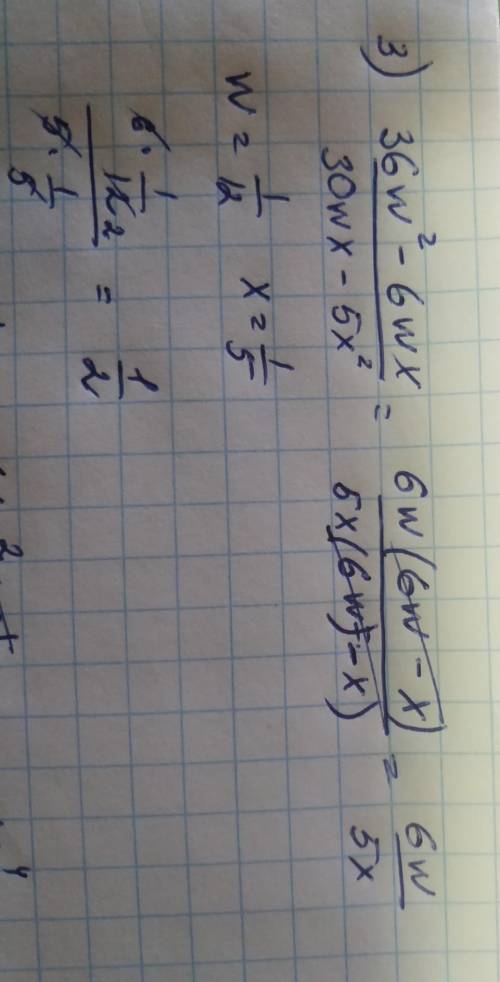 3) (36w² - 6wx)/(30wx - 5x²) = (6w(6w - x))/(5x(6w - x)) = 6w/5x
w = 1/12 x = 1/5
(6 · 1/12 2)/(5 · 1/5) = 1/2